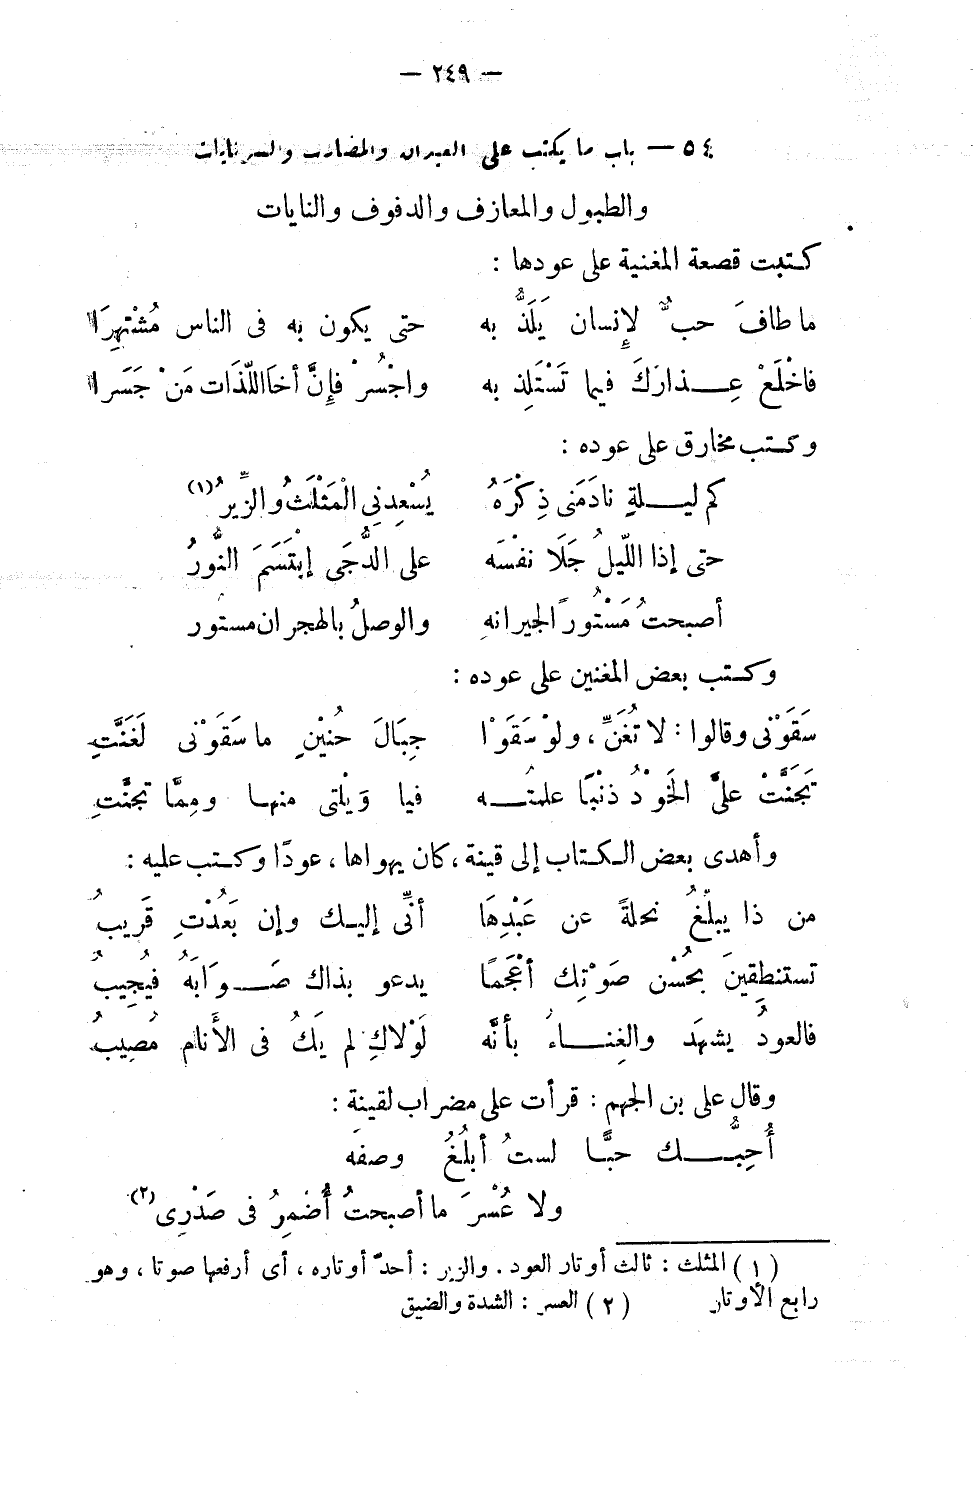 — ٢٤٩ —
٥٤ — باب ما يكتب على العيدان والمضارب والسرنايات
والطبول والمعازف والدفوف والنايات
كتبت قصعة المغنية على عودها :
ما طافَ حبٌّ لإِنسان يَلَذُّ به حتى يكون به فى الناس مُشْتهِرَا
فاخْلَعْ عِذارَكَ فيما تَسْتَلِذ به واجْسُرْ فإِنَّ أخا اللّذَات مَنْ جَسَرا
وكتب مخارق على عوده :
كم ليلةٍ نادَمَنى ذِكْرَهُ يُسْعِدنِى الْمَثْلَثُ والزِّيرُ (١)
حتى إذا اللّيلُ جَلَا نفْسَه على الدُّجَى إبْتَسَمَ النُّورُ
أصبحتُ مَسْتُوراً لجيرانهِ والوصلُ بالهجران مستور
وكتب بعض المغنين على عوده :
سَقَوْنى وقالوا : لا تُغَنِّ ، ولوْ سَقَوْا جِبَالَ حُنَيْنٍ ما سَقَوْنى لَغَنَّتِ
تَجَنَّتْ علىَّ الخَوْدُ ذنْبًا علمتُه فيا وَيْلتى منها ومِمَّا تجنَّتِ
وأهدى بعض الكتاب إلى قينة ، كان يهواها ، عودًا وكتب عليه :
من ذا يبلّغُ نحلةً عن عَبْدِهَا أنِّى إليك وإن بَعُدْتِ قَريبُ
تستنطِقِينَ بحُسْن صَوْتِك أعْجَمًا يدعو بذاك صَوَابَهُ فيُجِيبُ
فالعودُ يشهَد والغِناءُ بأنَّه لَوْلاكِ لم يَكُ فى الأَنام مُصِيبُ
وقال على بن الجهم : قرأت على مضراب لقينة :
أُحِبُّك حبًّا لستُ أبلُغُ وصفَه
ولا عُسْرَ ما أصبحتُ أُضمِرُ فى صَدْرِى (٢)
(١) المثلث : ثالث أوتار العود . والزير : أحدّ أوتاره ، أى أرفعها صوتا ، وهو
رابع الأوتار (٢) العسر : الشدة والضيق